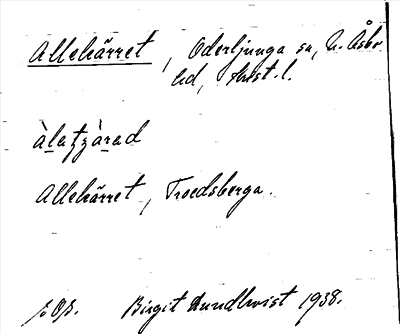 Allekärret, Oderljunga sn, N. Åsbo
hd, Krist. l.
àlatʒàrad
Allekärret, Troedsberga.
f. O/s. Birgit Lundkvist 1938.